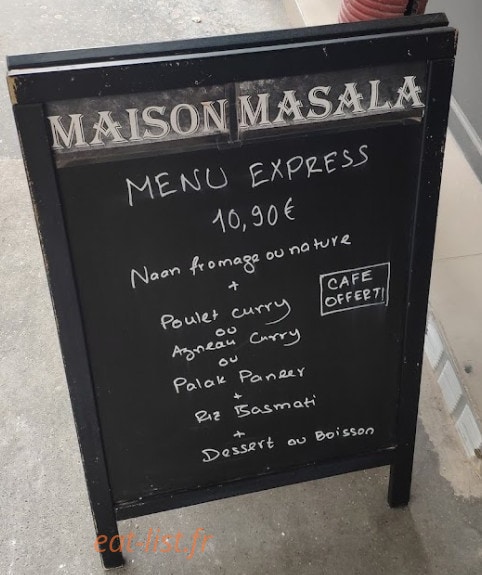 MAISON MASALA
MENU EXPRESS
10,90€
Naan fromage ou nature
+
CAFE
OFFERT!
Poulet curry
ou
Agneau Curry
ou
Palak Paneer
+
Riz Basmati
+
Dessert ou Boisson
eat-list.fr